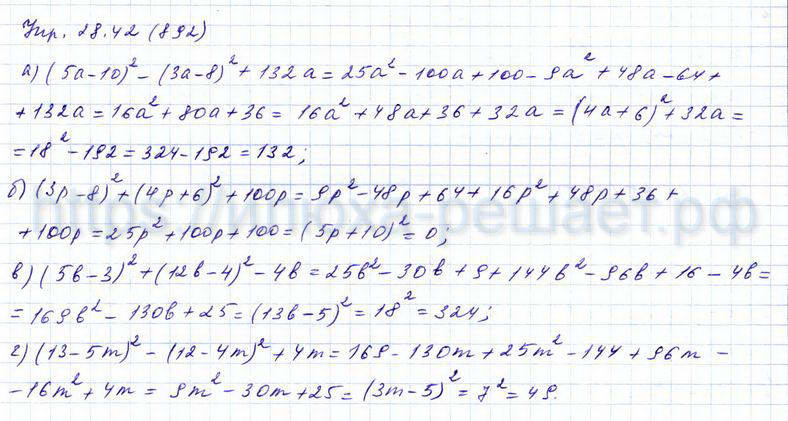 Упр. 28.42 (892)
а) (5a-10)² - (3a-8)² + 132a = 25a² - 100a + 100 - 9a² + 48a - 64 +
+ 132a = 16a² + 80a + 36 = 16a² + 48a + 36 + 32a = (4a+6)² + 32a =
= 18² - 192 = 324 - 192 = 132;
б) (3p-8)² + (4p+6)² + 100p = 9p² - 48p + 64 + 16p² + 48p + 36 +
https://инноха-решает.рф
+ 100p = 25p² + 100p + 100 = (5p+10)² = 0;
в) (5b-3)² + (12b-4)² - 4b = 25b² - 30b + 9 + 144b² - 96b + 16 - 4b =
= 169b² - 130b + 25 = (13b-5)² = 18² = 324;
г) (13-5m)² - (12-4m)² + 4m = 169 - 130m + 25m² - 144 + 96m -
- 16m² + 4m = 9m² - 30m + 25 = (3m-5)² = 7² = 49.